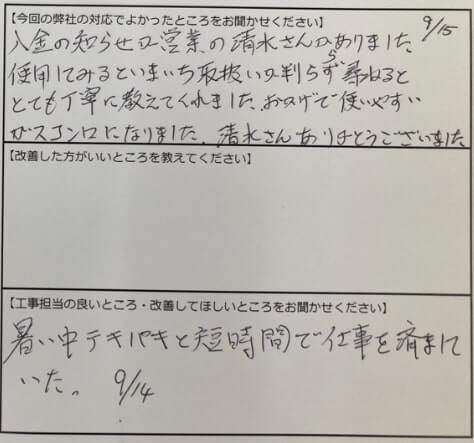 【今回の弊社の対応でよかったところをお聞かせください】
9/15
入金の知らせが営業の清水さんからありました。
使用してみるといまいち取扱いが判らず尋ねると
とても丁寧に教えてくれました。おかげで使いやすい
ガスコンロになりました。清水さんありがとうございました
【改善した方がいいところを教えてください】
【工事担当の良いところ・改善してほしいところをお聞かせください】
暑い中テキパキと短時間で仕事を済ませて
いた。 9/14